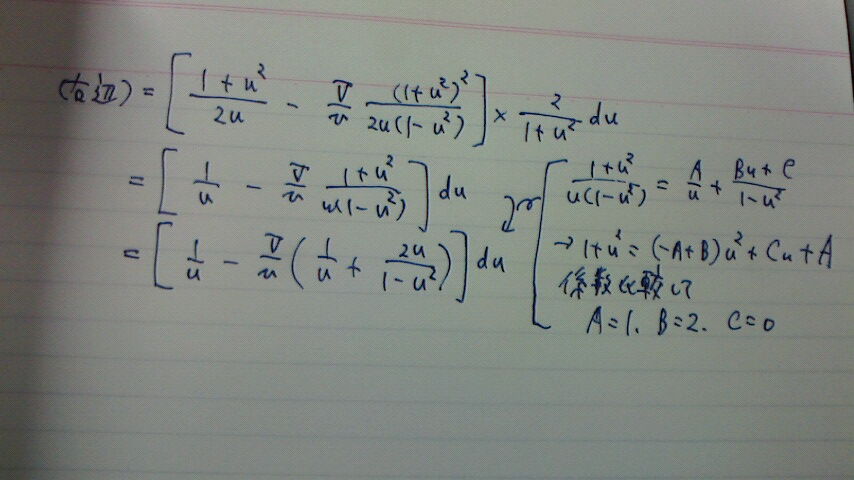 (右辺) = [ (1+u²)/(2u) − V/v (1+u²)²/(2u(1−u²)) ] × 2/(1+u²) du
= [ 1/u − V/v (1+u²)/(u(1−u²)) ] du
= [ 1/u − V/v ( 1/u + 2u/(1−u²) ) ] du
(1+u²)/(u(1−u²)) = A/u + (Bu+C)/(1−u²)
→ 1+u² = (−A+B)u² + Cu + A
係数比較して
A=1. B=2. C=0